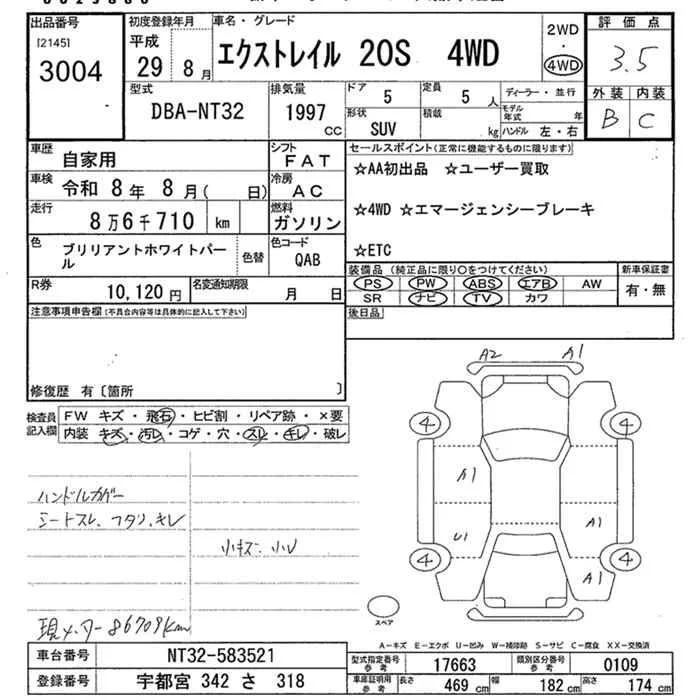 出品番号
[2145]
3004
初度登録年月
平成
29年 8月
車名・グレード
エクストレイル 20S 4WD
2WD
・
4WD
評価点
3.5
外装 内装
B C
型式
DBA-NT32
排気量
1997 cc
ドア
5
定員
5 人
形状
SUV
積載
kg
ディーラー・並行
モデル年式 年
ハンドル 左・右
車歴
自家用
シフト
FAT
車検
令和 8年 8月( 日)
冷房
AC
走行
8万6千710 km
燃料
ガソリン
色
ブリリアントホワイトパール
色替
色コード
QAB
R券
10,120円
名変通知期限
月 日
セールスポイント(正常に機能するものに限ります)
☆AA初出品 ☆ユーザー買取
☆4WD ☆エマージェンシーブレーキ
☆ETC
装備品(純正品に限り○をつけてください)
PS PW ABS エアB AW
SR ナビ TV カワ
新車保証書
有・無
後日品
注意事項申告欄(不具合内容等は具体的に記入して下さい)
修復歴 有〔箇所 〕
検査員記入欄
FW キズ・飛石・ヒビ割・リペア跡・×要
内装 キズ・汚レ・コゲ・穴・スレ・キレ・破レ
ハンドルカバー
シートスレ、フタリ、キレ
小キズ・小U
現メーター86709km
A2 A1
4 4
A1
U1 A1
4 4
A1
スペア
A-キズ E-エクボ U-凹み W-補修跡 S-サビ C-腐食 XX-交換済
車台番号
NT32-583521
登録番号
宇都宮 342 さ 318
型式指定番号参考
17663
類別区分番号参考
0109
車庫証明用参考
長さ 469 cm 幅 182 cm 高さ 174 cm